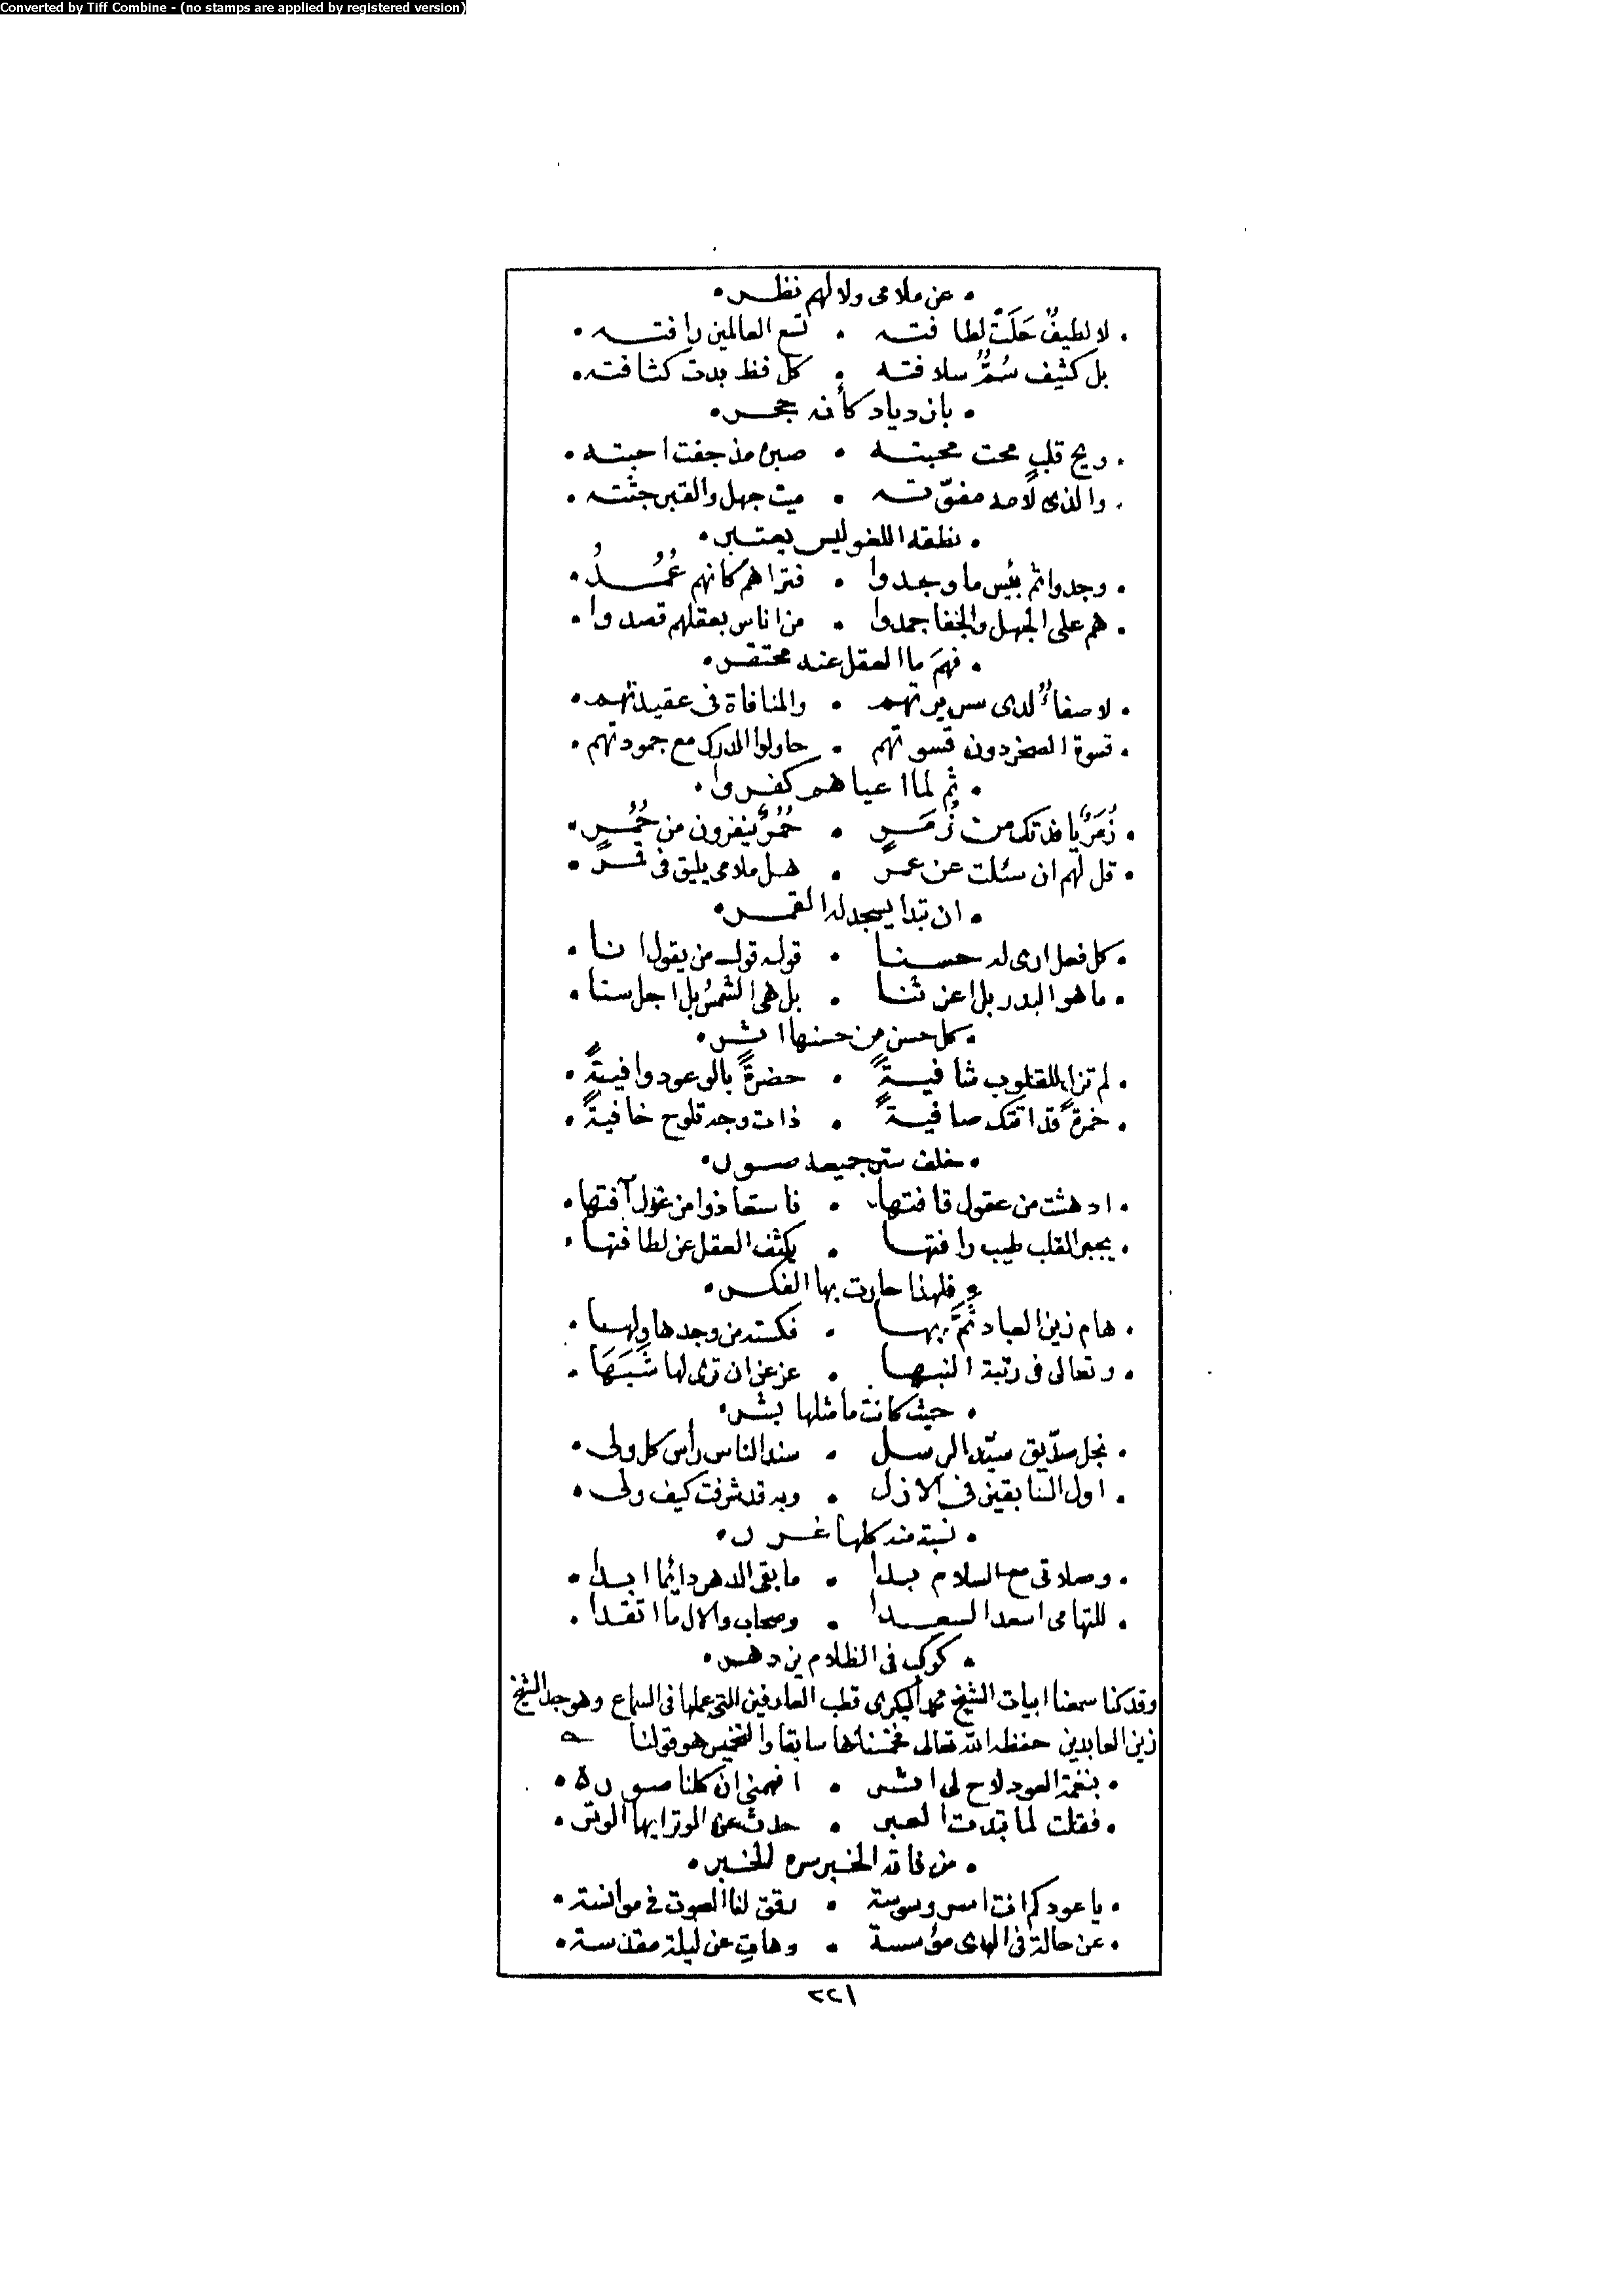 Converted by Tiff Combine - (no stamps are applied by registered version)
• عن ملامى ولا لهم نظر •
• لا لطيفٌ حَلَتْ لطافته • تسع العالمين رافته •
بل كثيف سُمٌّ سلافته • كل فظ بدت كثافته •
• بازدياد كأنه حجر •
• ويح قلبٍ محت محبته • صبره مذ جفت احبته •
• والذى لامه مفوّته • ميت جهل والقبر جثته •
• نطقه اللغو ليس يعتبر •
• وجدوا ثم بئس ما وجدوا • فتراهم كانهم عُمُدُ •
• هم على الجهل والخفا جمدوا • من اناس بعقلهم قصدوا •
• فهمَ ما العقل عنه محتقر •
• لا صفاءٌ لدى سريرتهم • والمنافاة فى عقيدتهم •
• قسوة الصخر دون قسوتهم • حاولوا الدرك مع جمودتهم •
• ثم لما اعياهم كفروا •
• زُمَرٌ يا فدتك من زُمَرٍ • حُمُرٌ ينفرون من حُمُرٍ •
• قل لهم ان سئلت عن عمرٍ • هل ملامى يليق فى قمرٍ •
• ان تبدا يسجد له القمر •
• كل فعل ارى له حسنا • قوله قول من يقول انا •
• ما هو البدر بل اعز ثنا • بل هى الشمسُ بل اجل سنا •
• كل حسن من حسنها اثر •
• لم تزل للقلوب شافيةً • حضرةً بالوعود وافيةً •
• خمرةً قد اتتك صافيةً • ذات وجه تلوح خافيةً •
• خلف ستر جميعه صور •
• ادهشت من عقول قافتها • فاستعاذوا من غول آفتها •
• يجبر القلب طيب رافتها • يكثف العقل عن لطافتها •
• فلهذا حارت بها الفكر •
• هام زين العباد ثَمَّ بها • فكسته من وجدها ولها •
• وتعالى فى رتبة النبها • عز عز ان ترى لها شَبَهَا •
• حيث كانت ما مثلها بشر •
• نجل صدّيق سيّد الرسل • سند الناس رأس كل ولى •
• اول السابقين فى الازل • وبه قد شرفت كيف ولى •
• نسبة منه كلها غرر •
• وصلاتى مع السلام بدا • ما بقى الدهر دائما ابدا •
• للتهامى اسعد السعدا • وصحاب والال ما اتقدا •
• كوكب فى الظلام يزدهر •
وقد كنا سمعنا ابيات الشيخ محمد البكرى قطب العارفين التى عملها فى السماع وهو جد الشيخ
زين العابدين حفظه الله تعالى فخمسناها سابقا والتخميس هو قولنا
• بنغمة العود لاح لى اثر • افهمنى ان كلنا صوره •
• فقلت لما تبدت العبر • حدث عن الوتر ايها الوتر •
• من فاته الخبر سره الخبر •
• يا عود كم انت امر وسوسة • رقق لنا الصوت فى موانسة •
• عن حالة فى الهوى مؤسسة • وهات عن ليلة مقدسة •
٢٢١